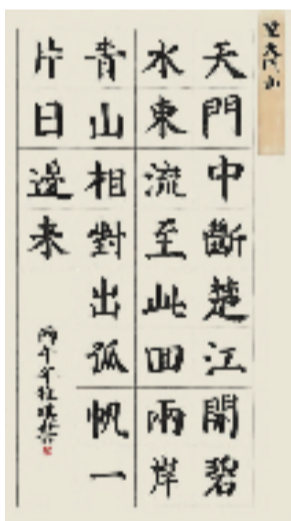 望天门山
天門中斷楚江開碧
水東流至此回兩岸
青山相對出孤帆一
片日邊来